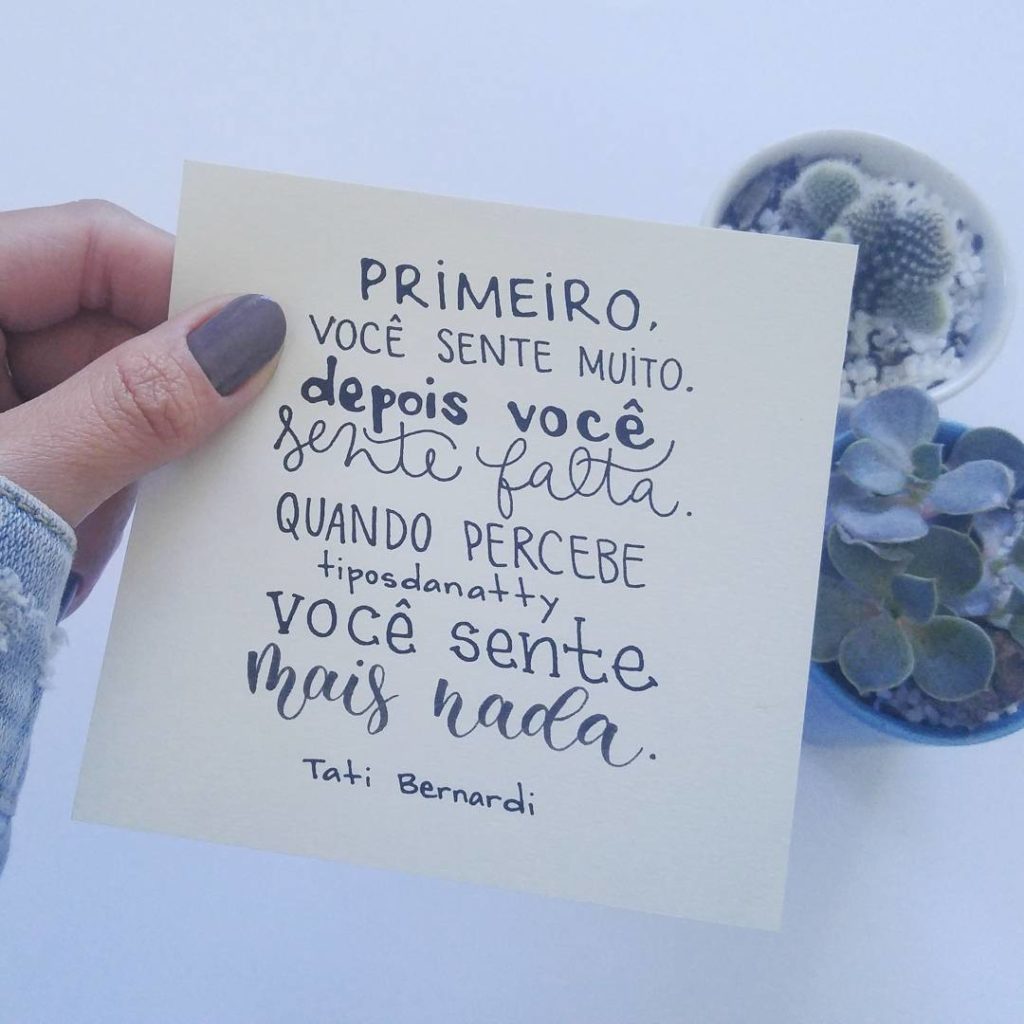 PRIMEIRO,
VOCÊ SENTE MUITO.
depois você
sente falta.
QUANDO PERCEBE
tiposdanatty
VOCÊ sente
mais nada.
Tati Bernardi